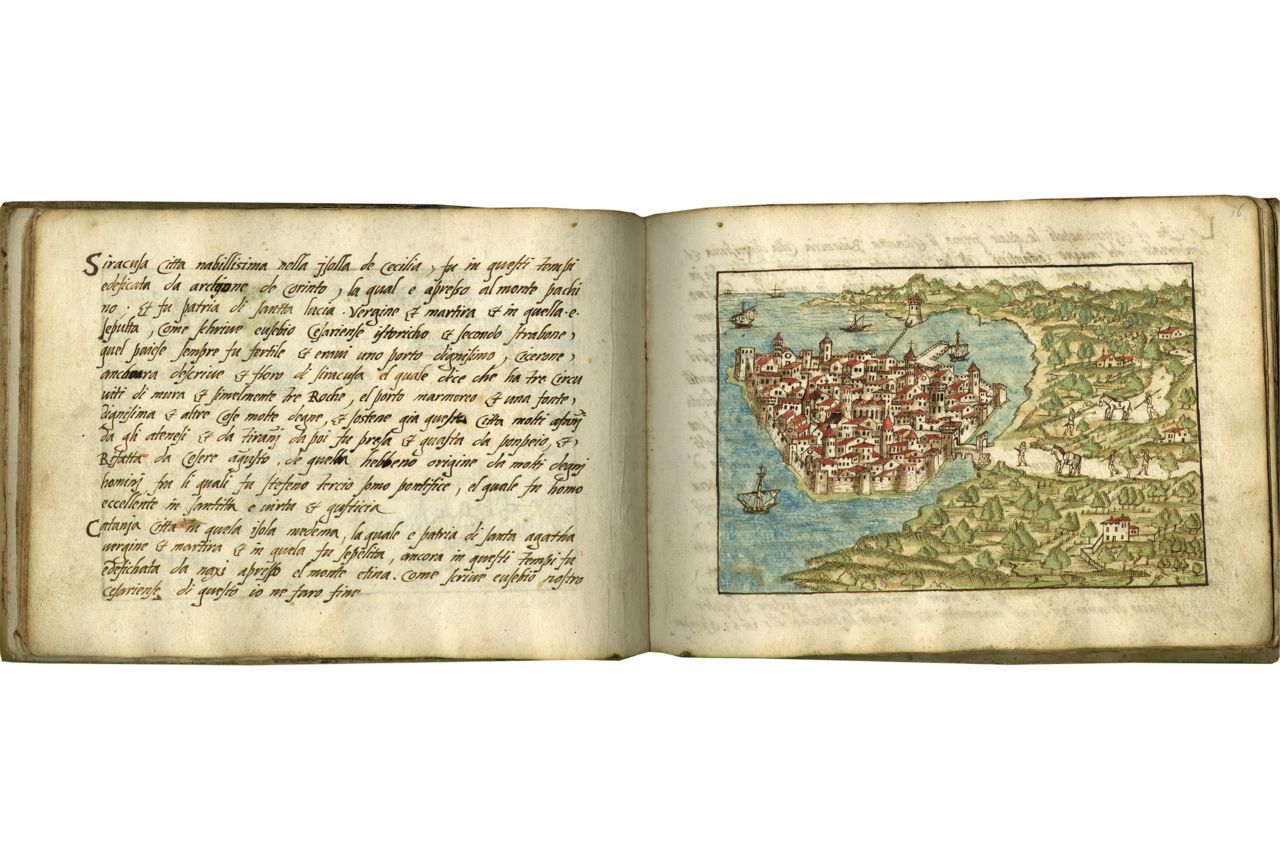 Siracusa Citta nabilissima nella jsolla de Cecilia, fu in questi tempi
edeficata da archjone de Corinto, la qual e apresso al monte pachi
no. et fu patria di santta lucia. Vergine et martira et in quella e
sepulta, Come schrive eusebio Cesariense istoricho et secondo strabone,
quel paiese sempre fu fertile et eravi uno porto dignissimo, Cicerone,
anchora descrive et storo di siracusa el quale dice che ha tre Circu
uiti di mura et similmente tre Roche, el porto marmoreo et una fonte,
dignissima et altre Cose molte degne, et sostene gia questa Citta molti
da gli ateniesi et da tiranj da poi fu presa et guasta da ponpeio, et,
da Cesere agusto, de quella hebbeno origine da molti degnj
hominj fra li quali fu stefeno tercio somo pontifice, el quale fu homo
eccellente in santita e uirtu et gusticia
Catanja Citta in quela isola medema, la quale e patria di santa agatha
vergine et martira et in quela fu sepelita, ancora in questi tempi fu
edefichata da naxi apresso el monte etina. Come scrive eusebio nostro
Cesariense di questo io ne faro fine
16